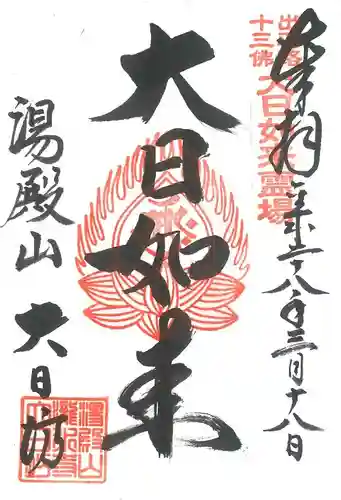 奉拝
平成二十八年三月十八日
出羽路
十三佛
大日如来霊場
大日如来
湯殿山
大日坊